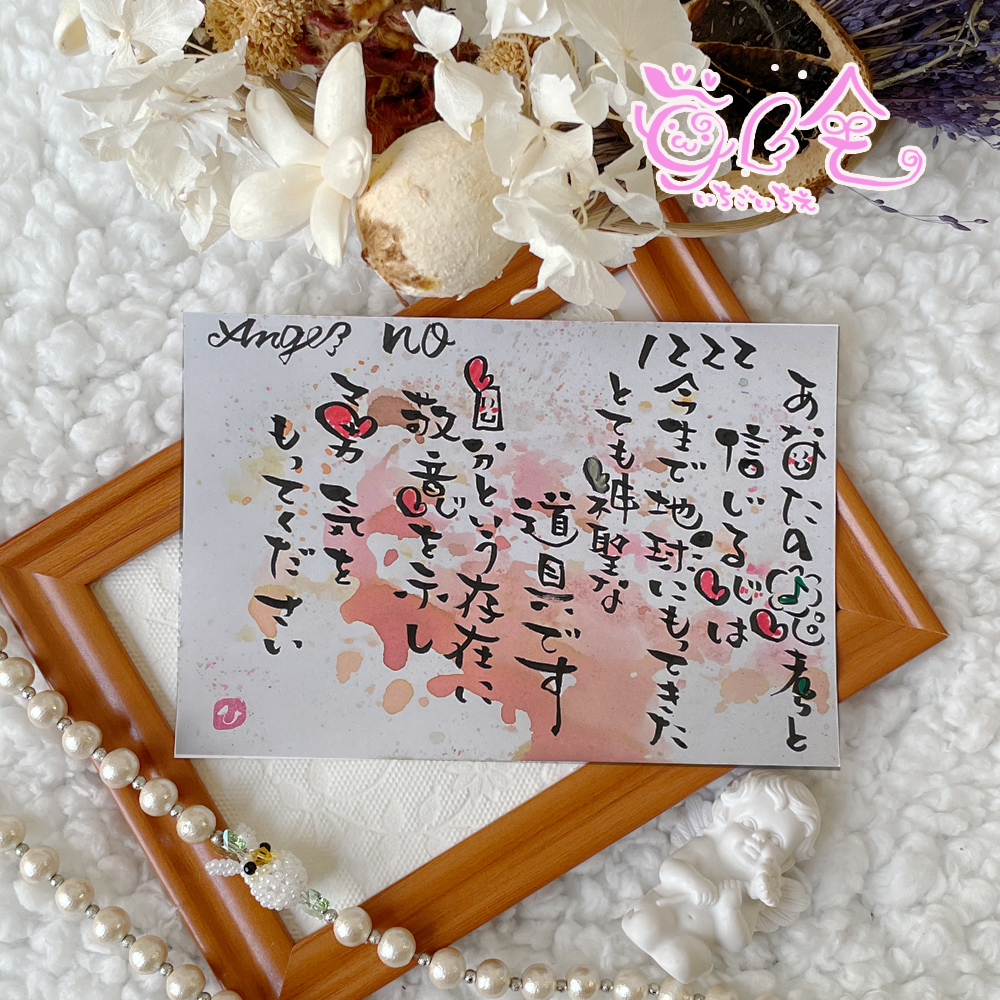 Angel no 1222
あなたの思考と
信じる心は
今生で地球にもってきた
とても神聖な
道具です
自分という存在に
敬意を示し
勇気を
もってください
ひ
いちごいちえ